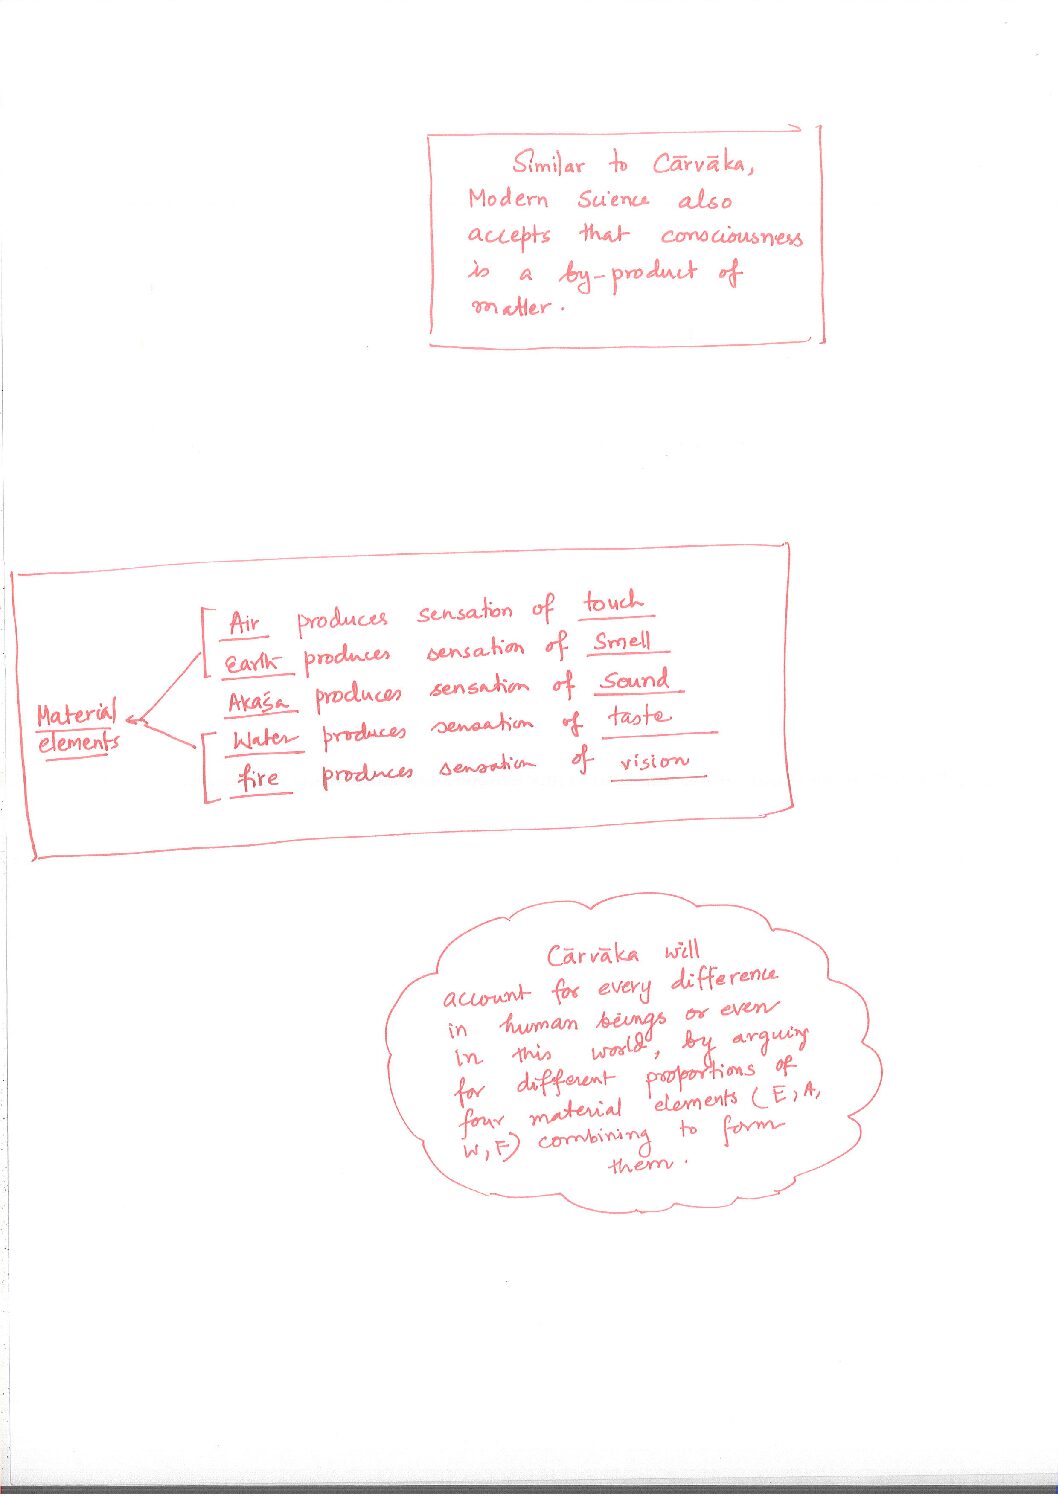 Similar to Cārvāka,
Modern Science also
accepts that consciousness
is a by-product of
matter.
Air produces sensation of touch
Earth produces sensation of Smell
Akaśa produces sensation of Sound
Material
elements
Water produces sensation of taste
fire produces sensation of vision
Cārvāka will
account for every difference
in human beings or even
in this world, by arguing
for different proportions of
four material elements (E, A,
W, F) combining to form
them.